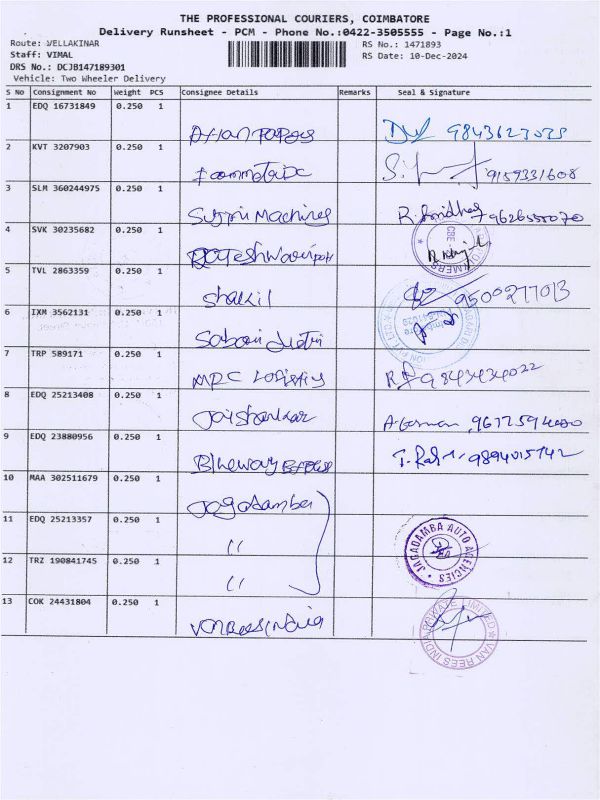 THE PROFESSIONAL COURIERS, COIMBATORE
Delivery Runsheet - PCM - Phone No.:0422-3505555 - Page No.:1
Route: VELLAKINAR
RS No.: 1471893
Staff: VIMAL
RS Date: 10-Dec-2024
DRS No.: DCJB147189301
Vehicle: Two Wheeler Delivery
S No Consignment No Weight PCS Consignee Details Remarks Seal & Signature
1 EDQ 16731849 0.250 1
9843623033
2 KVT 3207903 0.250 1
9159331608
3 SLM 360244975 0.250 1 Machines
4 SVK 30235682 0.250 1
5 TVL 2863359 0.250 1 Shakil 9500277013
6 IXM 3562131 0.250 1
7 TRP 589171 0.250 1 MPC Logistics 9843434022
8 EDQ 25213408 0.250 1 Jaishankar
9 EDQ 23880956 0.250 1 Blueway Express 9894015742
10 MAA 302511679 0.250 1 Jagadamba
11 EDQ 25213357 0.250 1 "
JAGADAMBA AUTO AGENCIES
12 TRZ 190841745 0.250 1 "
13 COK 24431804 0.250 1 Van Rees India
VAN REES INDIA PRIVATE LIMITED